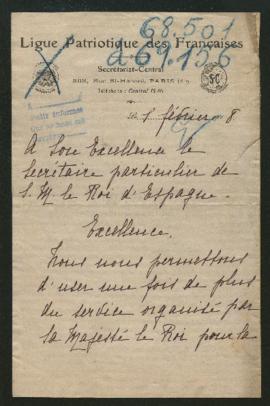 68.501
à 69.156
Ligue Patriotique des Françaises
Secrétariat-Central
Rue St-Honoré, PARIS
Téléphone: Central
Le 1 février 8
A Son Excellence le
Secrétaire particulier de
S. M. le Roi d'Espagne.
Excellence,
Nous nous permettons
d'user une fois de plus
du service organisé par
sa Majesté le Roi pour la